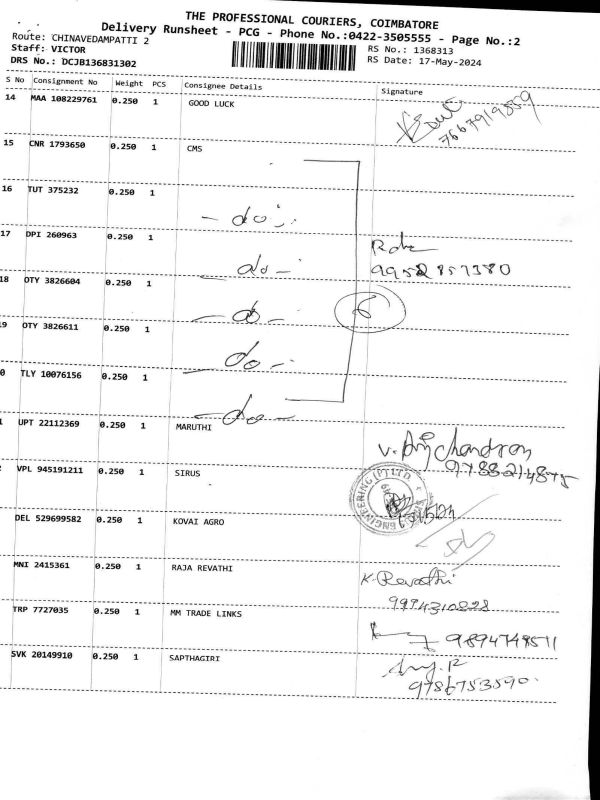 THE PROFESSIONAL COURIERS, COIMBATORE
Delivery Runsheet - PCG - Phone No.:0422-3505555 - Page No.:2
Route: CHINAVEDAMPATTI 2
Staff: VICTOR
DRS No.: DCJB136831302
RS No.: 1368313
RS Date: 17-May-2024
S No Consignment No Weight PCS Consignee Details Signature
14 MAA 108229761 0.250 1 GOOD LUCK
7667919859
15 CNR 1793650 0.250 1 CMS
16 TUT 375232 0.250 1
- do -
17 DPI 260963 0.250 1
- do -
9952857380
18 OTY 3826604 0.250 1
- do - 6
19 OTY 3826611 0.250 1
- do -
0 TLY 10076156 0.250 1
- do -
1 UPT 22112369 0.250 1 MARUTHI
9788214875
VPL 945191211 0.250 1 SIRUS
ENGINEERING (P) LTD
DEL 529699582 0.250 1 KOVAI AGRO
MNI 2415361 0.250 1 RAJA REVATHI
K. Revathi
9994310828
TRP 7727035 0.250 1 MM TRADE LINKS
9894749511
SVK 20149910 0.250 1 SAPTHAGIRI
9786753590